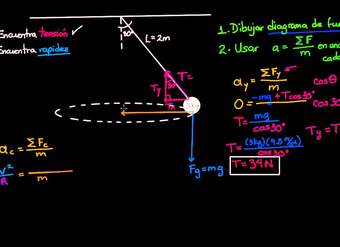 Encuentra tensión ✓
Encuentra rapidez
30°
L=2m
Ty
30°
T=
Fg=mg
1. Dibujar diagrama de fue
2. Usar a = ΣF/m en una
cada
ay = ΣFy/m
cosθ
0 = -mg + Tcos30°/m
cos30
T = mg/cos30°
Ty = T
T = (3kg)(9.8 m/s²)/cos30°
T = 34N
ac = ΣFc/m
v²/R = /m